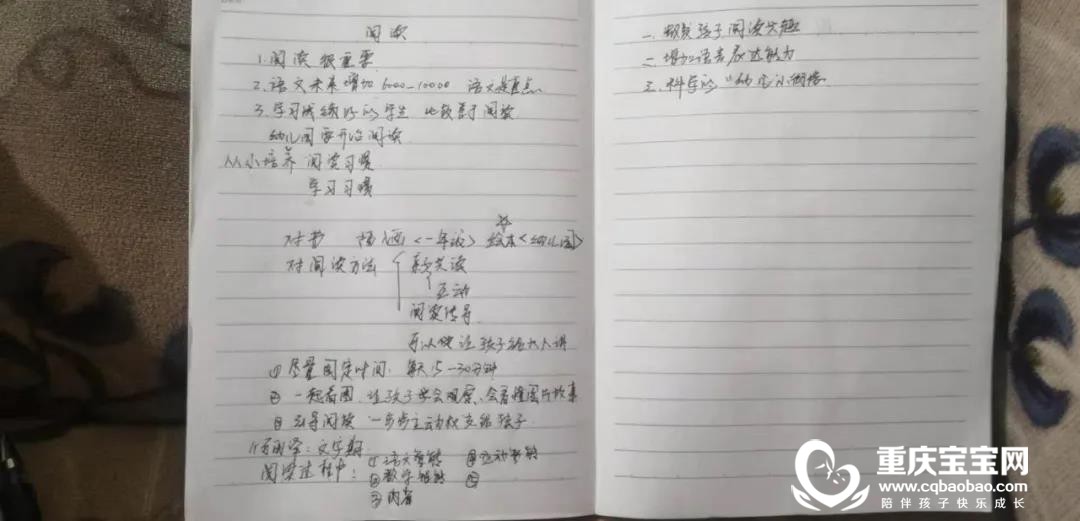 阅读
1.阅读很重要
2.语文未来增加6000—10000 语文是重点
3.学习成绩好的学生 比较善于阅读
幼儿园要开始阅读
从小培养 阅读习惯
学习习惯
对书 插画<一年级> 绘本<幼儿园>
对阅读方法 亲子共读
互动
阅读传导
可以让孩子给大人讲
尽量固定时间,每天15—30分钟
一起看图,让孩子学会观察、会看懂图片故事
引导阅读 一步步主动权交给孩子
文字期
阅读过程中:①语文智能
②数学智能
③内省
一、激发孩子阅读兴趣
二、增加语言表达能力
三、科学的
重庆宝宝网
www.cqbaobao.com
陪伴孩子快乐成长